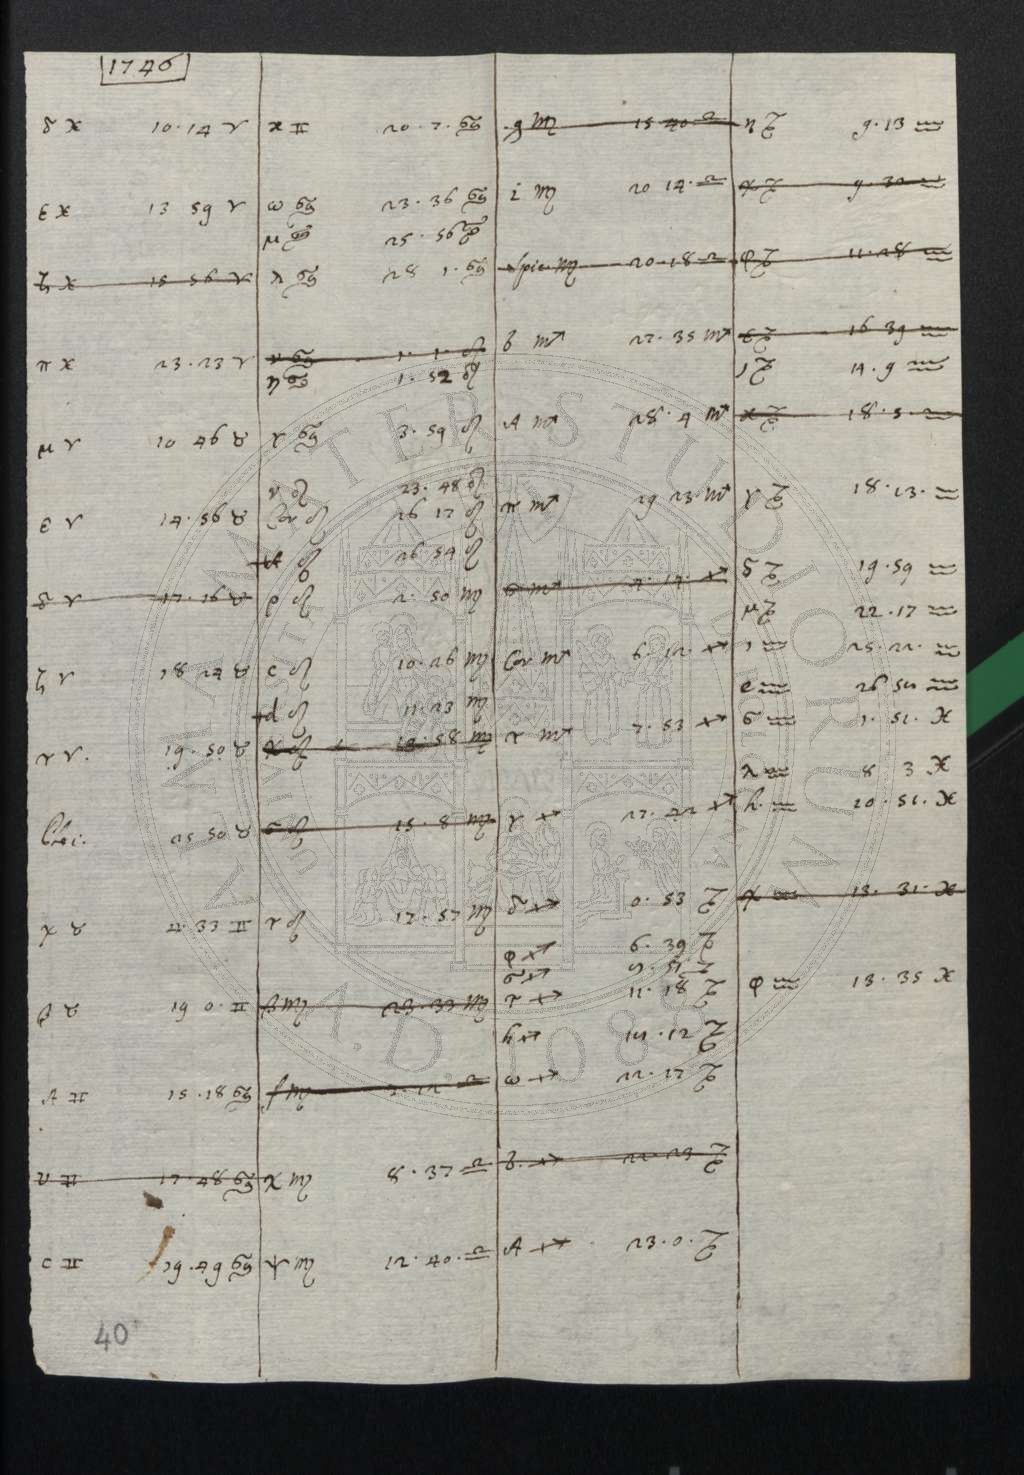 1746
δ ♓ 10. 14 ♈
ε ♓ 13 59 ♈
ζ ♓ 15 56 ♈
π ♓ 23. 23 ♈
μ ♈ 10 46 ♉
ε ♈ 14. 56 ♉
δ ♈ 17. 16 ♉
ζ ♈ 18 24 ♉
τ ♈. 19. 50 ♉
25 50 ♉
χ ♉ 4. 33 ♊
β ♉ 19 0. ♊
A ♊ 15. 18 ♋
υ ♊ 17. 48 ♋
c ♊ 19. 49 ♋
κ ♊ 20. 7. ♋
ω ♋ 23. 36 ♋
μ ♋ 25. 56
λ ♋ 28 1. ♋
ν ♋ 1. 1. ♌
η ♋ 1. 52 ♌
γ ♋ 3. 59 ♌
ν ♌ 23. 48 ♌
Cor ♌ 26 17 ♌
26 54 ♌
ρ ♌ 2. 50 ♍
c ♌ 10. 26 ♍
d ♌ 11. 23 ♍
χ ♌ 13. 58 ♍
σ ♌ 15. 8 ♍
τ ♌ 17. 57 ♍
β ♍ 23. 33 ♍
f ♍ 2. 12 ♎
χ ♍ 8. 37 ♎
ψ ♍ 12. 40. ♎
g ♍ 15 40 ♎
i ♍ 20 14. ♎
Spic. ♍ 20. 18 ♎
b ♏ 27. 35 ♏
A ♏ 28. 4 ♏
π ♏ 29 23. ♏
σ ♏ 4. 14. ♐
Cor ♏ 6. 12. ♐
τ ♏ 7. 53 ♐
γ ♐ 27. 42 ♐
δ ♐ 0. 53 ♑
φ ♐ 6. 39 ♑
σ ♐ 9. 51 ♑
τ ♐ 11. 18 ♑
h ♐ 14. 12 ♑
ω ♐ 22. 17 ♑
b. ♐ 22. 23 ♑
A ♐. 23. 0. ♑
η ♑ 9. 13 ♒
χ ♑ 9. 32 ♒
φ ♑ 11. 28 ♒
ε ♑ 16 39 ♒
♑ 14. 9 ♒
κ ♑ 18. 5. ♒
γ ♑ 18. 13. ♒
δ ♑ 19. 59 ♒
μ ♑ 22. 17 ♒
ι ♒ 25. 22. ♒
e ♒ 26 54 ♒
σ ♒ 1. 51. ♓
λ ♒ 8 3 ♓
h. ♒ 10. 51. ♓
χ ♒ 13. 31. ♓
φ ♒ 13. 35 ♓
40
ALMA MATER STUDIORUM
A.D. 1088